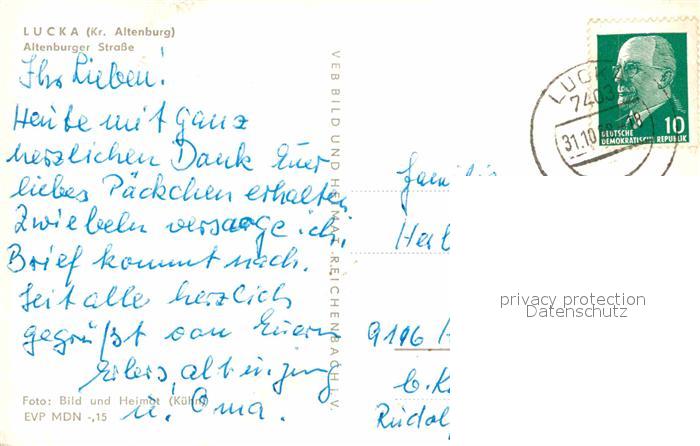 LUCKA (Kr. Altenburg)
Altenburger Straße
Ihr Lieben!
Heute mit ganz
herzlichen Dank Euer
liebes Päckchen erhalten
Zwiebeln versorge ich.
Brief kommt nach.
Seit alle herzlich
gegrüßt von Euern
alt u. jung
u. Oma.
Foto: Bild und Heimat (Kühn)
EVP MDN -,15
VEB BILD UND HEIMAT REICHENBACH I. V.
LUCK
7403
31.10
18
10
DEUTSCHE
DEMOKRATISCHE REPUBLIK
Familie
Herb
9116 H
b. K
Rudol
privacy protection
Datenschutz